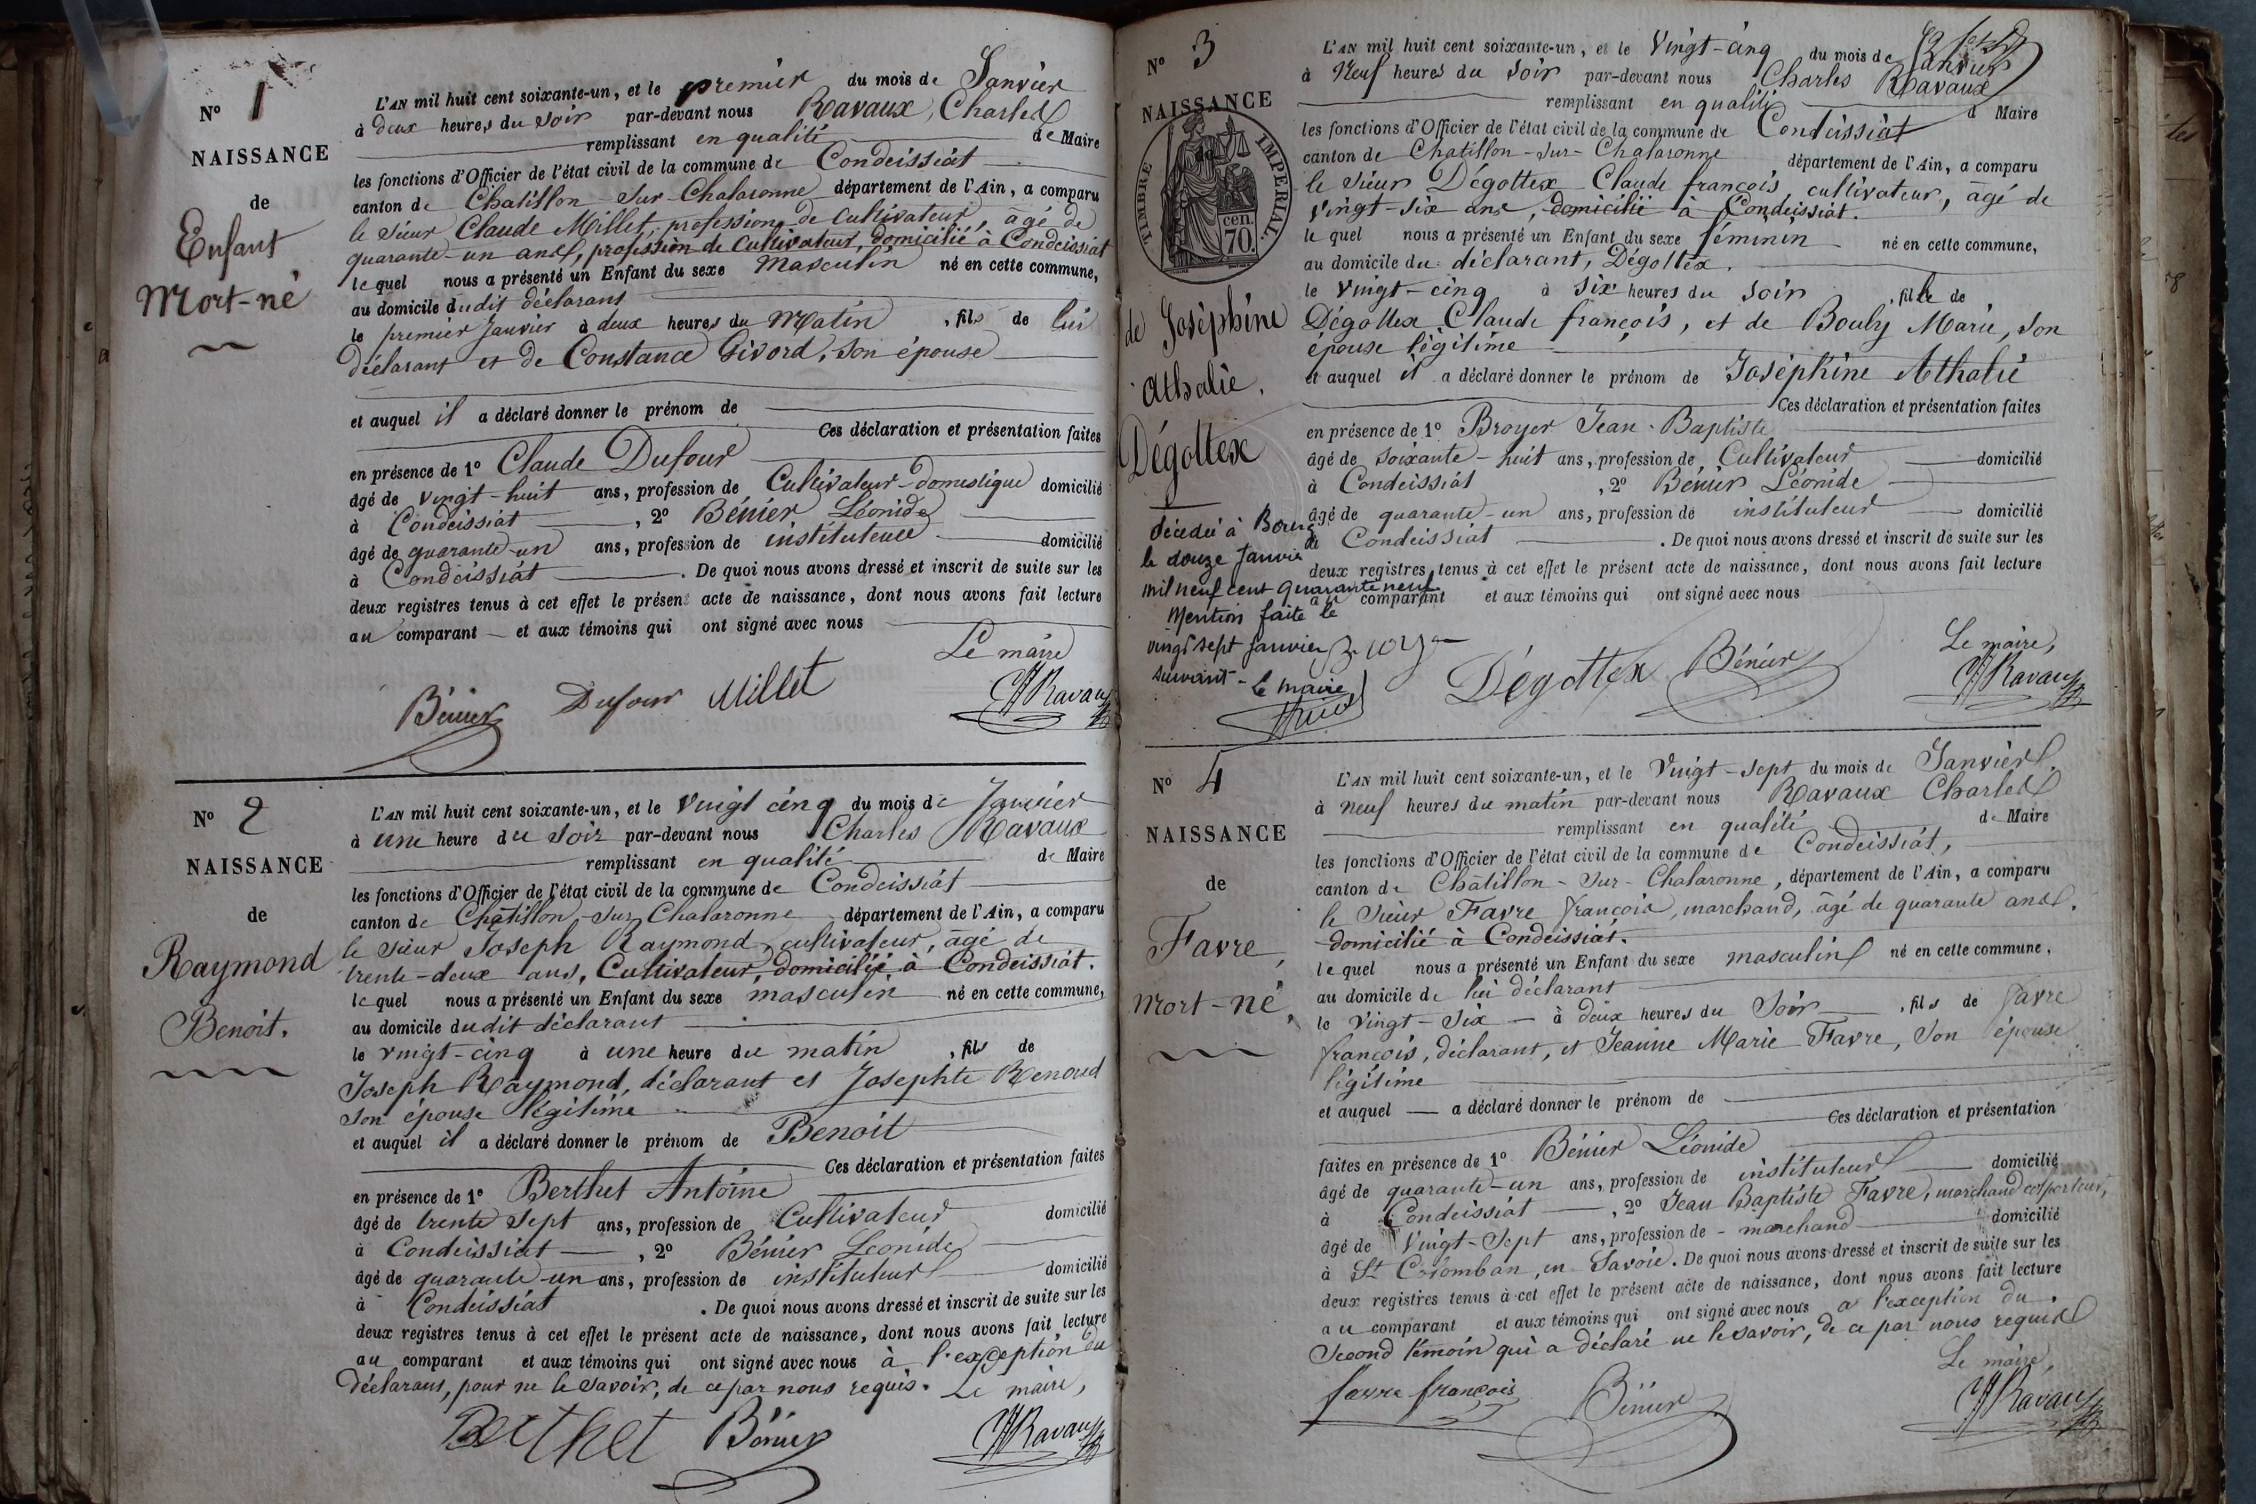 N° 1
NAISSANCE
de
Enfant
Mort-né
L'AN mil huit cent soixante-un, et le premier du mois de Janvier
à deux heures du soir par-devant nous Ravaux, Charles
remplissant en qualité de Maire
les fonctions d'Officier de l'état civil de la commune de Condeissiat
canton de Chatillon-sur-Chalaronne département de l'Ain, a comparu
le sieur Claude Millet, profession de cultivateur, âgé de
quarante-un ans, profession de Cultivateur, domicilié à Condeissiat
lequel nous a présenté un Enfant du sexe Masculin né en cette commune,
au domicile dudit déclarant
le premier Janvier à deux heures du Matin, fils de lui
déclarant et de Constance Givord, son épouse
et auquel il a déclaré donner le prénom de
Ces déclaration et présentation faites
en présence de 1° Claude Dufour
âgé de vingt-huit ans, profession de Cultivateur-domestique domicilié
à Condeissiat, 2° Bénier Léonide
âgé de quarante-un ans, profession de instituteur domicilié
à Condeissiat. De quoi nous avons dressé et inscrit de suite sur les
deux registres tenus à cet effet le présent acte de naissance, dont nous avons fait lecture
au comparant et aux témoins qui ont signé avec nous
Le maire
Bénier Dufour Millet Ravaux
N° 2
NAISSANCE
de
Raymond
Benoit.
L'AN mil huit cent soixante-un, et le Vingt cinq du mois de Janvier
à une heure du soir par-devant nous Charles Ravaux
remplissant en qualité de Maire
les fonctions d'Officier de l'état civil de la commune de Condeissiat
canton de Châtillon-sur-Chalaronne département de l'Ain, a comparu
le sieur Joseph Raymond, cultivateur, âgé de
trente-deux ans, Cultivateur, domicilié à Condeissiat.
lequel nous a présenté un Enfant du sexe masculin né en cette commune,
au domicile dudit déclarant
le vingt-cinq à une heure du matin, fils de
Joseph Raymond, déclarant et Josephte Renoud
son épouse légitime
et auquel il a déclaré donner le prénom de Benoit
Ces déclaration et présentation faites
en présence de 1° Berthet Antoine
âgé de trente sept ans, profession de Cultivateur domicilié
à Condeissiat, 2° Bénier Leonide
âgé de quarante-un ans, profession de instituteur domicilié
à Condeissiat. De quoi nous avons dressé et inscrit de suite sur les
deux registres tenus à cet effet le présent acte de naissance, dont nous avons fait lecture
au comparant et aux témoins qui ont signé avec nous à l'exception du
déclarant, pour ne le savoir, de ce par nous requis. Le maire,
Berthet Bénier Ravaux
N° 3
NAISSANCE
de
TIMBRE IMPERIAL.
70 cen.
de Joséphine
Athalie.
Dégottex
décédée à Bourg
le douze Janvier
mil neuf cent quarante neuf
Mention faite le
vingt sept Janvier
suivant - le maire
L'AN mil huit cent soixante-un, et le Vingt-cinq du mois de Janvier
à Neuf heures du soir par-devant nous Charles Ravaux
remplissant en qualité d Maire
les fonctions d'Officier de l'état civil de la commune de Condeissiat
canton de Chatillon-sur-Chalaronne département de l'Ain, a comparu
le sieur Dégottex Claude françois, cultivateur, âgé de
vingt-six ans, domicilié à Condeissiat.
lequel nous a présenté un Enfant du sexe féminin né en cette commune,
au domicile du déclarant, Dégottex.
le vingt-cinq à six heures du soir, fille de
Dégottex Claude françois, et de Bouly Marie, son
épouse légitime
et auquel il a déclaré donner le prénom de Joséphine Athalie
Ces déclaration et présentation faites
en présence de 1° Broyer Jean-Baptiste
âgé de soixante-huit ans, profession de Cultivateur domicilié
à Condeissiat, 2° Bénier Léonide
âgé de quarante-un ans, profession de instituteur domicilié
à Condeissiat. De quoi nous avons dressé et inscrit de suite sur les
deux registres tenus à cet effet le présent acte de naissance, dont nous avons fait lecture
au comparant et aux témoins qui ont signé avec nous
Le maire,
Broyer Dégottex Bénier Ravaux
N° 4
NAISSANCE
de
Favre,
mort-né,
L'AN mil huit cent soixante-un, et le Vingt-sept du mois de Janvier
à neuf heures du matin par-devant nous Ravaux Charles
remplissant en qualité de Maire
les fonctions d'Officier de l'état civil de la commune de Condeissiat,
canton de Châtillon-sur-Chalaronne, département de l'Ain, a comparu
le sieur Favre françois, marchand, âgé de quarante ans.
domicilié à Condeissiat.
lequel nous a présenté un Enfant du sexe masculin né en cette commune,
au domicile de lui déclarant
le Vingt-six à deux heures du soir, fils de favre
françois, déclarant, et Jeanne Marie Favre, son épouse
légitime
et auquel a déclaré donner le prénom de
Ces déclaration et présentation
faites en présence de 1° Bénier Léonide
âgé de quarante-un ans, profession de instituteur domicilié
à Condeissiat, 2° Jean Baptiste Favre, marchand colporteur,
âgé de Vingt-Sept ans, profession de marchand domicilié
à St Colomban, en Savoie. De quoi nous avons dressé et inscrit de suite sur les
deux registres tenus à cet effet le présent acte de naissance, dont nous avons fait lecture
au comparant et aux témoins qui ont signé avec nous à l'exception du
second témoin qui a déclaré ne le savoir, de ce par nous requis
Le maire,
favre françois Bénier Ravaux